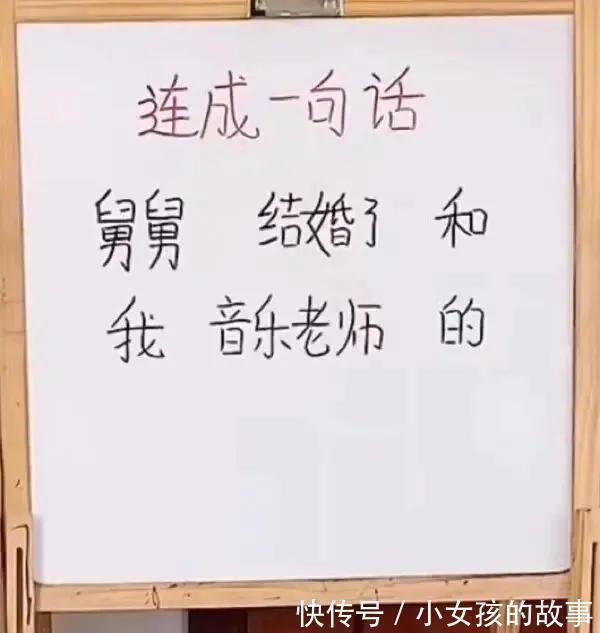 连成一句话
舅舅 结婚了 和
我 音乐老师 的
快传号 / 小女孩的故事